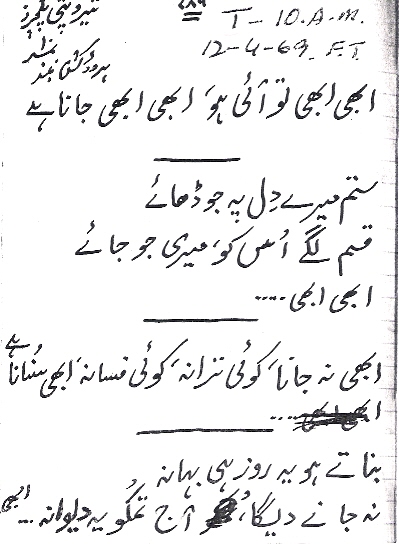 ۷۸۶
T - 10. A.M.
12-4-69. F.T.
ابھی ابھی تو آئی ہو، ابھی ابھی جانا ہے
ستم میرے دِل پہ جو ڈھائے
قسم لگے اُس کو، میری جو جائے
ابھی ابھی .....
ابھی نہ جانا، کوئی ترانہ، کوئی فسانہ، ابھی سُنانا ہے
بناتے ہو یہ روز ہی بہانہ
نہ جانے دیگا، آج تمکو یہ دیوانہ ... ابھی